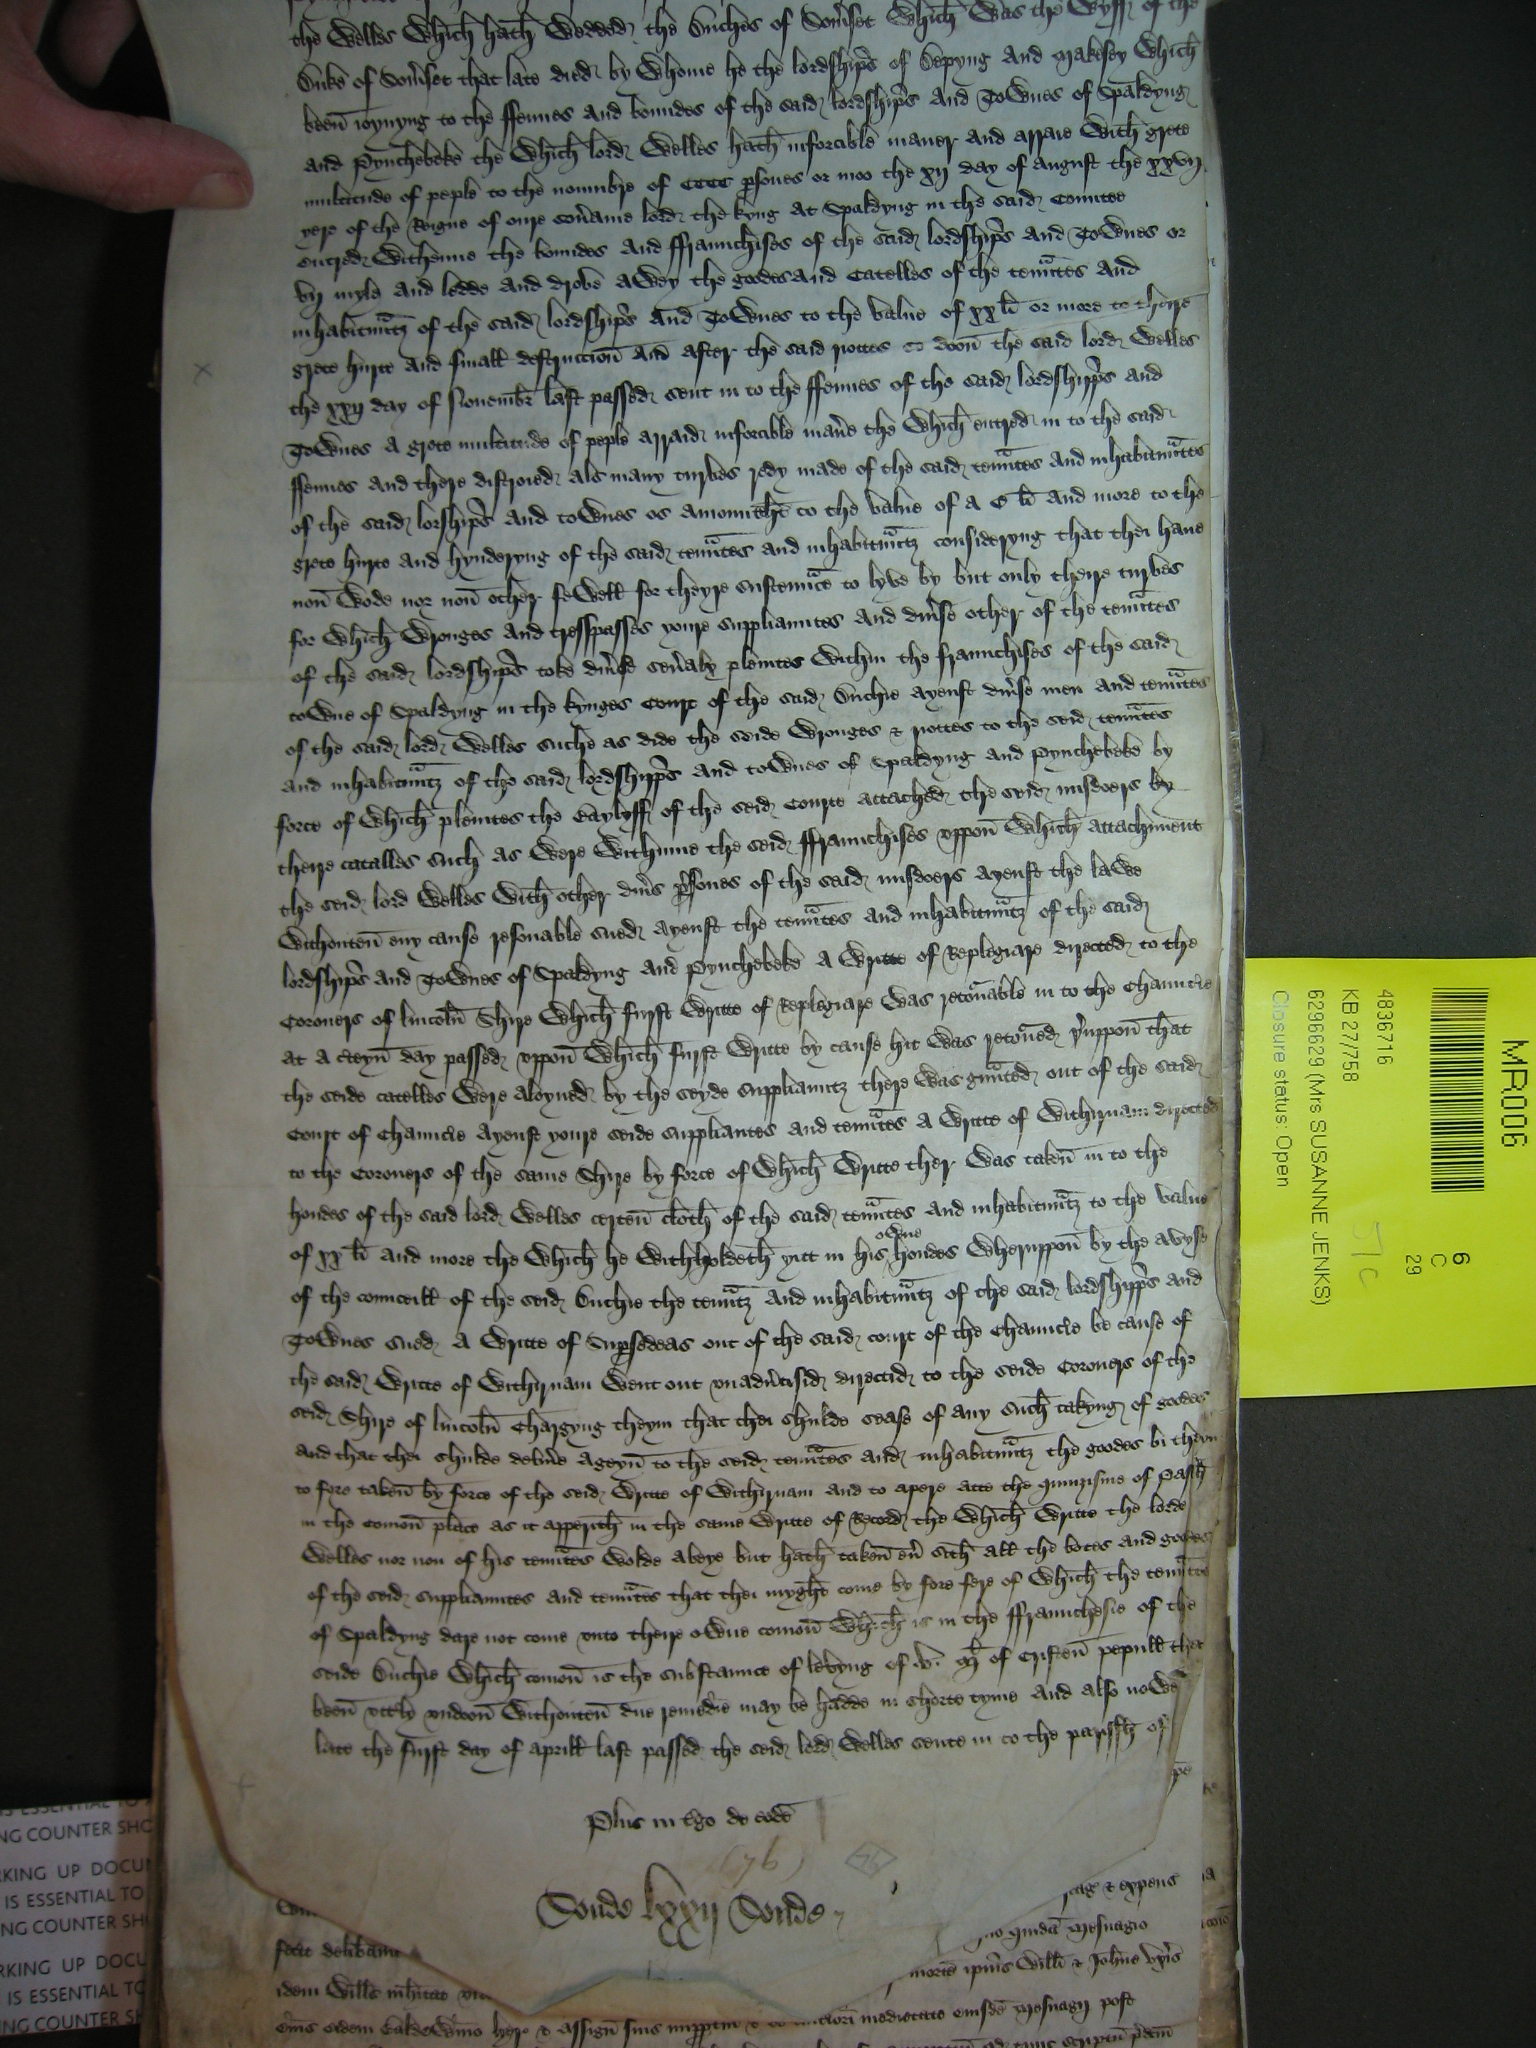 the Welles Which hath Wedded the Duches of Som̃set Which Was the Wyff of the
Duke of Som̃set that late died by Whome he the lordshipp̃s of Depyng And Makesey Which
been̄ ioynyng to the ffennes And boundes of the said lordshipp̃s And ToWnes of Spaldyng
And Pynchebeke the Which lord Welles hath inforcible maner And arraie With grete
multitude of peple to the noumbre of CCCC p̃sones or moo the xij day of August the xxvij
yere of the Reigne of oure Sou̅aine lord the kyng At Spaldyng in the said Countee
entred Withynne the boundes And ffraunchises of the said lordshipp̃s And ToWnes or
by myle And ledde And drobe aWey the goodes And Catelles of the ten̄ntes And
inhabitn̄tz of the said lordshipp̃s And ToWnes to the value of xx li or more to theire
grete hurte And small destruccion̄ And after the said riottes so doon̄ the said lord Welles
the xxij day of Nouembr last passed sent in to the ffennes of the said lordshipp̃s And
ToWnes A grete multitude of peple arraid inforcible man̄e the Which entred in to the said
ffennes And there distroied als many turbes redy made of the said ten̄ntes And inhabitn̄tes
of the said lorshipp̃s And toWnes os Amounteth to the value of a C li And more to the
grete hurte And hynderyng of the said ten̄ntes And inhabitn̄tz consideryng that thei haue
non̄ Wode nor non̄ other feWell for theyre sustenn̄ce to lyve by but only theire turbes
for Which Wronges And tresspasses youre suppliauntes And diu̅se other of the ten̄ntes
of the said lordshipp̃s toke diu̅se seu̅aly pleintes Within the fraunchises of the said
toWne of Spaldyng in the kynges Court of the said Duchie Ayenst diu̅se men And ten̄ntes
of the said lord Welles suche as dide the seide Wronges & riottes to the seid ten̄ntes
And inhabitn̄tz of the said lordshipp̃s And toWnes of Spaldyng And Pynchebeke by
force of Which pleintes the Baylyff of the seid Courte attached the seid misdoers by
theire catalles such as Were Withynne the seid ffraunchises vppon̄ Which attachment
the seid lord Welles With other diu̅s p̃sones of the said misdoers Ayenst the laWe
Withouten̄ eny cause resonable sued Ayenst the ten̄ntes And inhabitn̄tz of the said
lordshipp̃s And ToWnes of Spaldyng And Pynchebeke A Writte of Replegiare directed to the
Coroners of lincoln̄ Shire Which furst Writte of Replegiare Was retou̅nable in to the Chauncie
at A c̃teyn̄ day passed vppon̄ Which furst Writte by cause hit Was retou̅ned þ̃uppon̄ that
the seide catelles Were Aloyned by the seyde suppliauntz there Was grn̄ted out of the said
Court of Chauncie Ayenst youre seide suppliantes And ten̄ntes A Writte of Withirnam directed
to the Coroners of the same Shire by force of Which Writte ther Was taken̄ in to the
hondes of the said lord Welles certen̄ cloth of the said ten̄ntes And inhabitn̄tz to the value
of xx li And more the Which he Withholdeth yitt in his oWne hondes Wheruppon̄ by the Avyse
of the counceill of the seid Duchie the ten̄ntz And inhabitn̄tz of the said lordshipp̃s And
ToWnes sued A Writte of Supsedeas out of the said court of the Chauncie be cause of
the said Writte of Withirnam Went out vnadu̅tisid directid to the seide Coroners of the
seid Shire of lincoln̄ Chargyng theym that thei shulde sease of any such takyng of goodes
And that thei shulde delyu̅e Ageyn̄ to the seid ten̄ntes And inhabitn̄tz the goodes bi theym
to fore taken̄ by force of the seid Writte of Withirnam And to Apere atte the quinzisme of Pasch
in the comon̄ place as it Apperith in the same Writte of Record the Which Writte the lorde
Welles nor non of his ten̄ntes Wolde Abeye but hath taken̄ eu̅ sith all the botes And goodes
of the seid suppliauntes And ten̄ntes that thei myght come by fore fere of Which the ten̄ntes
of Spaldyng dare not come vnto theire oWne comon̄ Which is in the ffraunchesie of the
seide Duchie Which comon̄ is the substaunce of levyng of .v. Ml of cristen̄ pepull that
been̄ vttly vndoon̄ Withouten̄ due remedie may be hadde in shorte tyme And also noWe
late the furst day of Aprill last passed the seid lord Welles sente in to the parissh of
Plus in t̃go de eod̄
(76)
Sonde lxxij Sonde
fece delibam̃
idem Will̃s
p̃tage & expens̃
mesuagio
mortē ip̃ius Will̃i & Joh̃ne vx̃is
medietate eiusdē mesuagij post
MR006
6
C
29
5/c
4836716
KB 27/758
6296629 (Mrs SUSANNE JENKS)
Closure status: Open
IS ESSENTIAL TO
NG COUNTER SHO
RKING UP DOCU
IS ESSENTIAL TO
NG COUNTER SH
RKING UP DOCU
IS ESSENTIAL TO
NG COUNTER SH